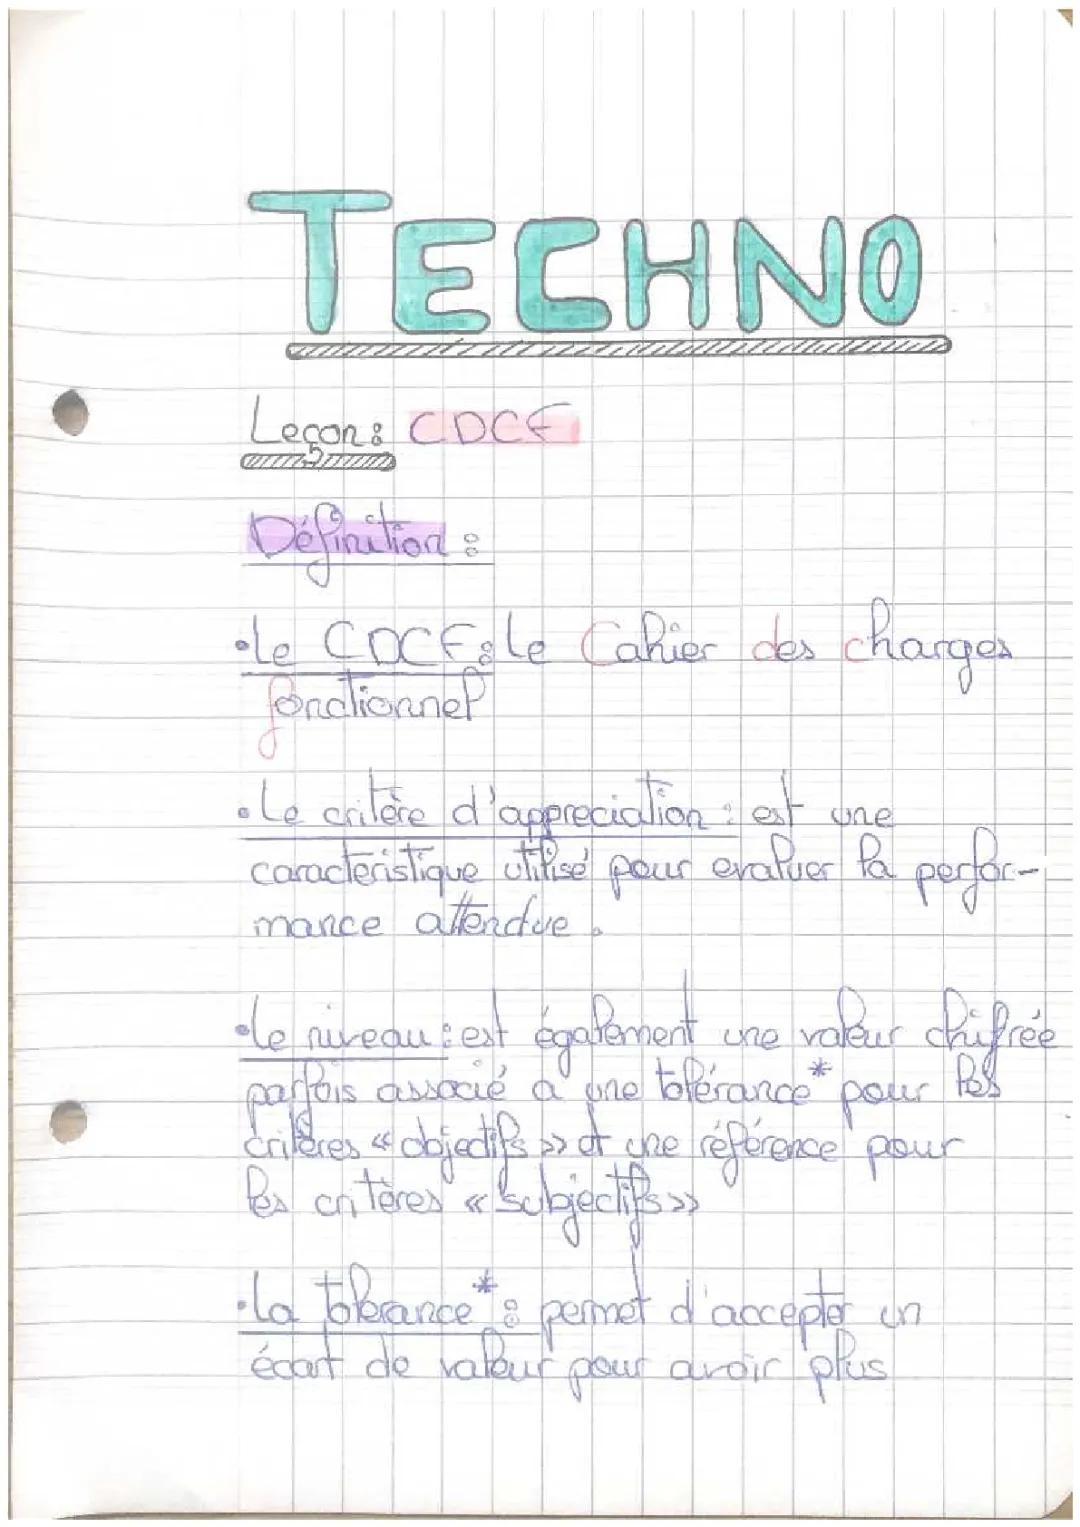 TECHNO
Leçon: CDCF
Définition :
•Le CDCF: Le Cahier des charges
fonctionnel
•Le critère d'appreciation : est une
caractéristique utilisé pour evaluer la perfor-
mance attendue.
•Le niveau : est également une valeur chifrée
parfois associé à une tolérance* pour les
critères « objectifs » et une référence pour
les critères « subjectifs »
•La tolerance* : permet d'accepter un
écart de valeur pour avoir plus